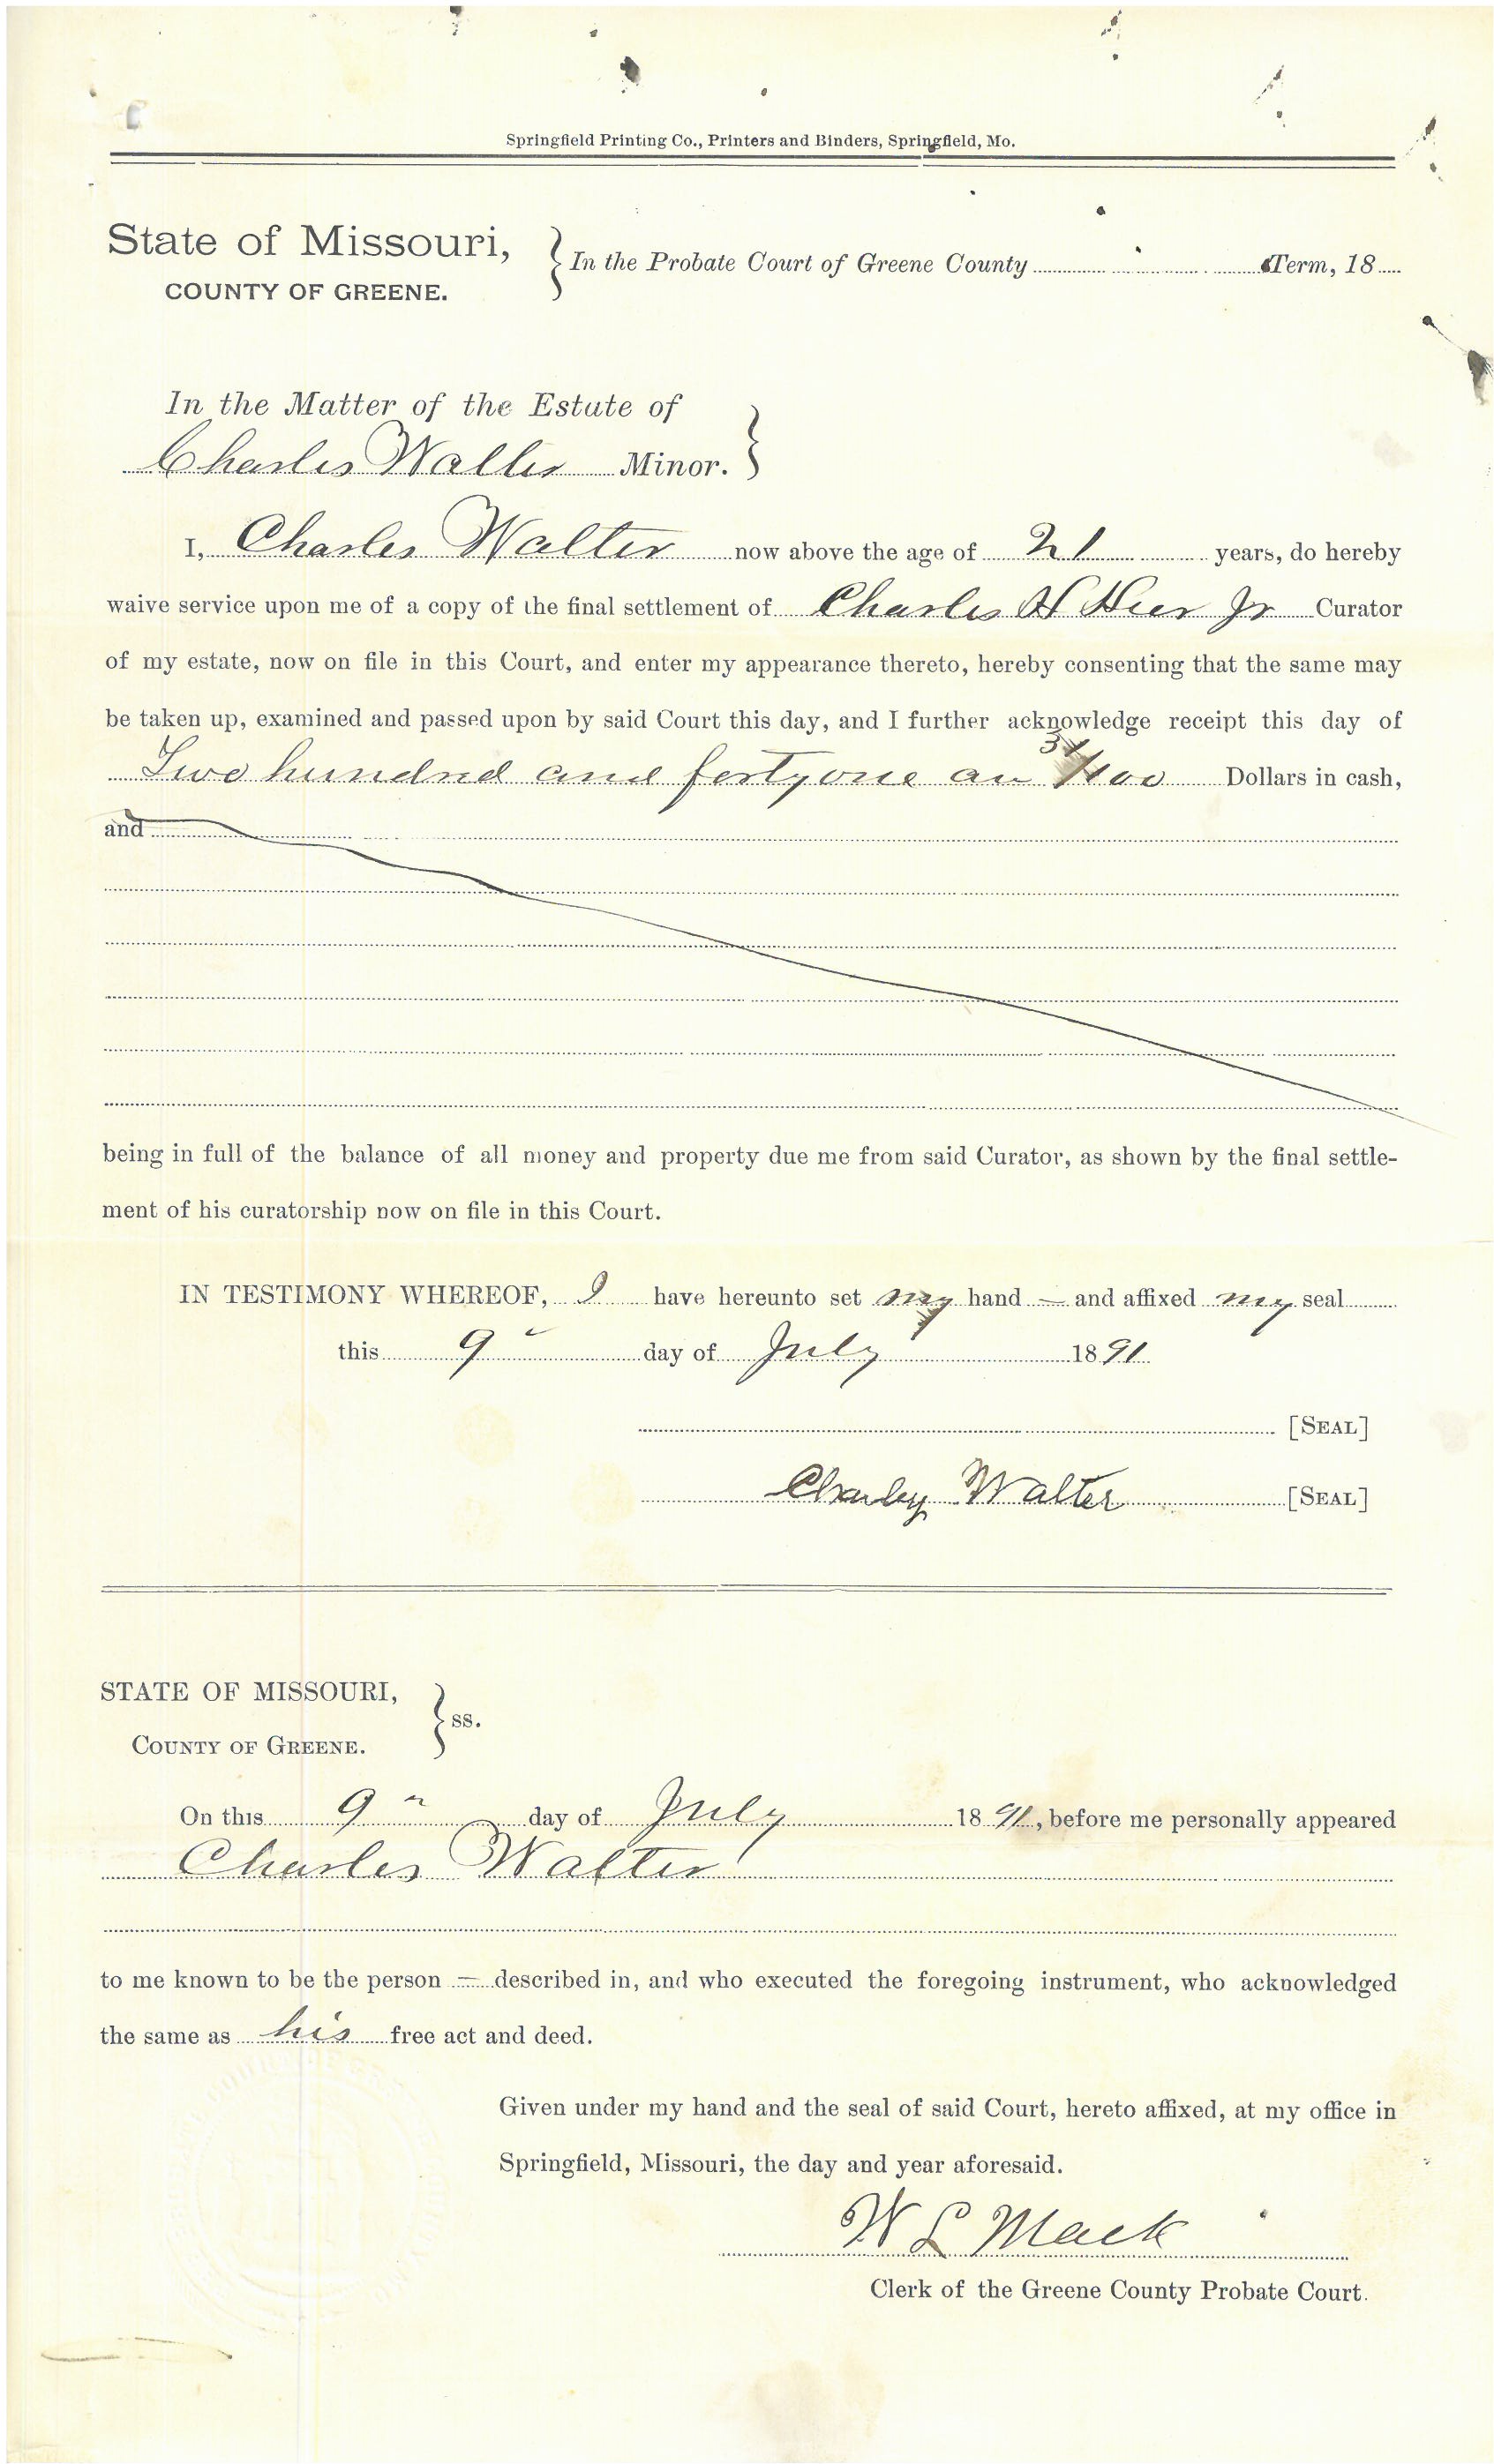 Springfield Printing Co., Printers and Binders, Springfield, Mo.
State of Missouri,
COUNTY OF GREENE.
In the Probate Court of Greene County Term, 18
In the Matter of the Estate of
Charles Walter Minor.
I, Charles Walter now above the age of 21 years, do hereby
waive service upon me of a copy of the final settlement of Charles H Heer Jr Curator
of my estate, now on file in this Court, and enter my appearance thereto, hereby consenting that the same may
be taken up, examined and passed upon by said Court this day, and I further acknowledge receipt this day of
Two hundred and forty one an /100 Dollars in cash,
and
being in full of the balance of all money and property due me from said Curator, as shown by the final settle-
ment of his curatorship now on file in this Court.
IN TESTIMONY WHEREOF, I have hereunto set my hand — and affixed my seal
this 9" day of July 1891
[SEAL]
Charley Walter [SEAL]
STATE OF MISSOURI,
COUNTY OF GREENE.
ss.
On this 9" day of July 1891, before me personally appeared
Charles Walter
to me known to be the person — described in, and who executed the foregoing instrument, who acknowledged
the same as his free act and deed.
Given under my hand and the seal of said Court, hereto affixed, at my office in
Springfield, Missouri, the day and year aforesaid.
W L Mack
Clerk of the Greene County Probate Court.